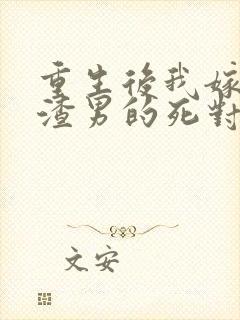 重生後我嫁
渣男的死對
文安